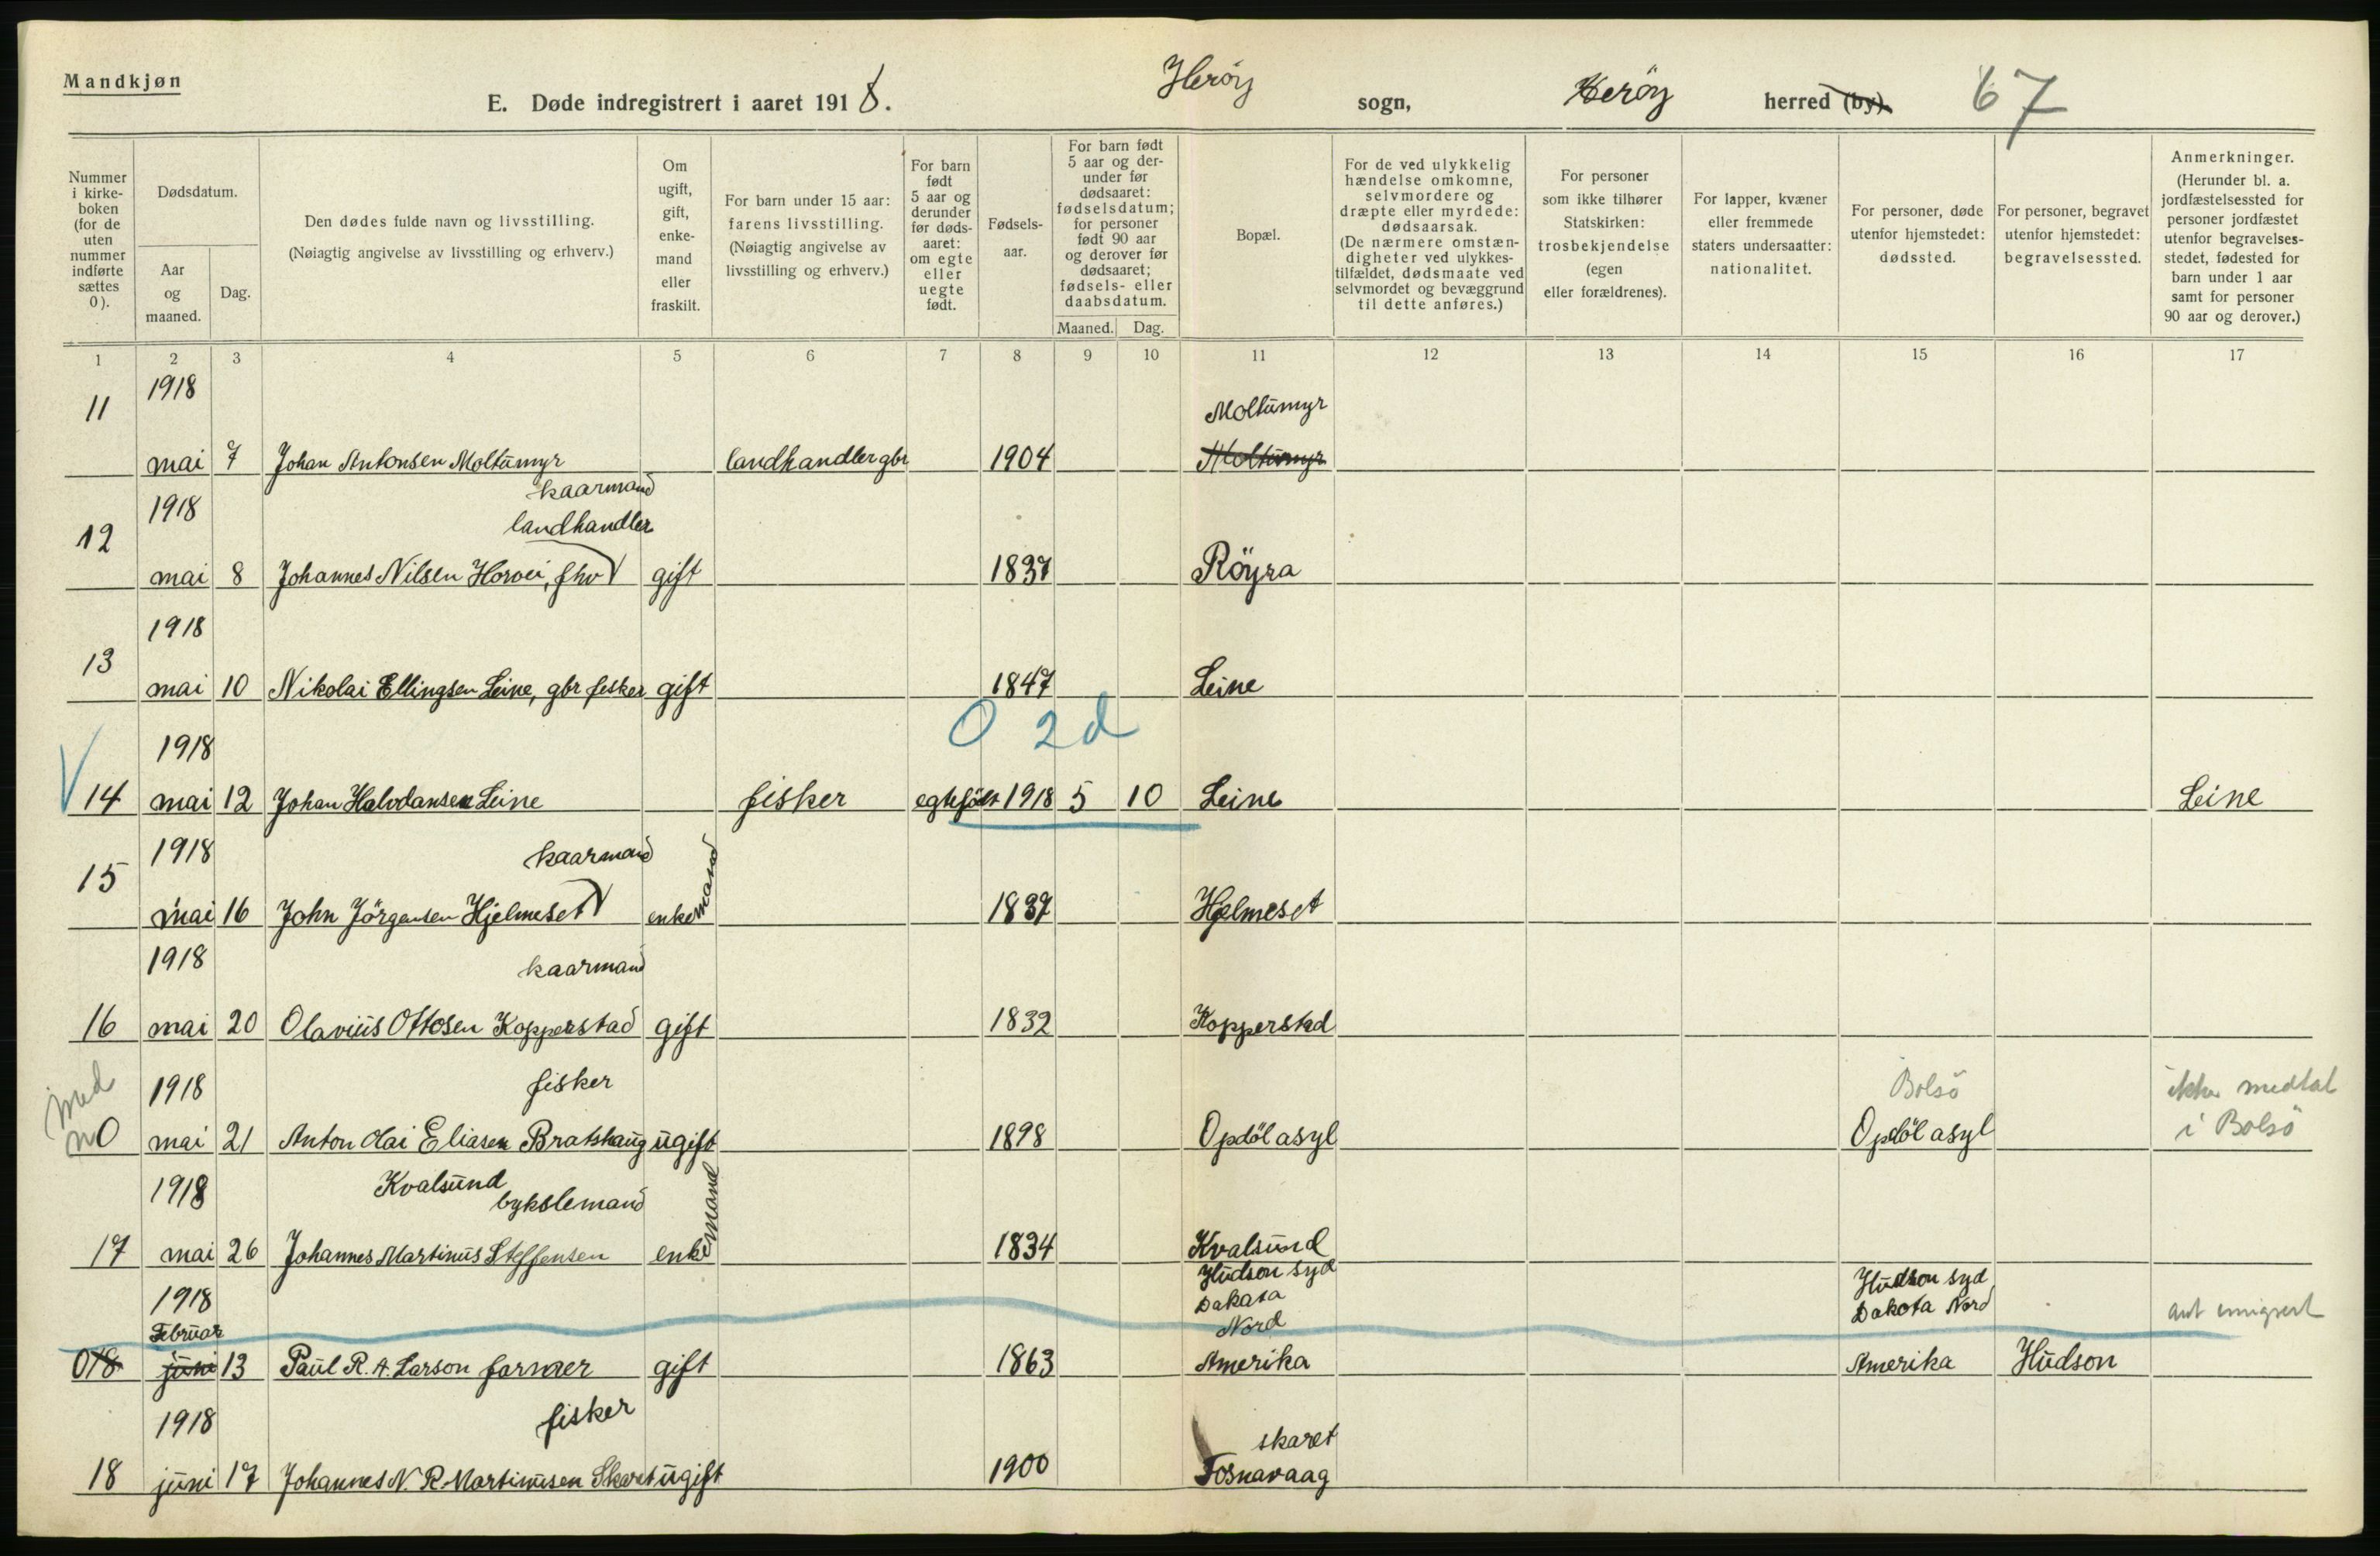 Mandkjøn
E. Døde indregistrert i aaret 1918.
Herøy sogn, Herøy herred (by). 67
Nummer i kirke- boken (for de uten nummer indførte sættes 0).
Dødsdatum.
Aar og maaned.
Dag.
Den dødes fulde navn og livsstilling.
(Nøiagtig angivelse av livsstilling og erhverv.)
Om ugift, gift, enke- mand eller fraskilt.
For barn under 15 aar: farens livsstilling.
(Nøiagtig angivelse av livsstilling og erhverv.)
For barn født 5 aar og derunder før døds- aaret: om egte eller uegte født.
Fødsels- aar.
For barn født 5 aar og der- under før dødsaaret: fødselsdatum; for personer født 90 aar og derover før dødsaaret; fødsels- eller daabsdatum.
Maaned. Dag.
Bopæl.
For de ved ulykkelig hændelse omkomne, selvmordere og dræpte eller myrdede: dødsaarsak.
(De nærmere omstæn- digheter ved ulykkes- tilfældet, dødsmaate ved selvmordet og bevæggrund til dette anføres.)
For personer som ikke tilhører Statskirken: trosbekjendelse (egen eller forældrenes).
For lapper, kvæner eller fremmede staters undersaatter: nationalitet.
For personer, døde utenfor hjemstedet: dødssted.
For personer, begravet utenfor hjemstedet: begravelsessted.
Anmerkninger.
(Herunder bl. a. jordfæstelsessted for personer jordfæstet utenfor begravelses- stedet, fødested for barn under 1 aar samt for personer 90 aar og derover.)
1 2 3 4 5 6 7 8 9 10 11 12 13 14 15 16 17
1918
11 Moltumyr
mai 7 Johan Antonsen Moltumyr landhandler gbr 1904 Moltumyr
kaarmand
1918 landhandler
12
mai 8 Johannes Nilsen Horvei, fhv gift 1837 Röyra
1918
13
mai 10 Nikolai Ellingsen Leine, gbr fisker gift 1847 Leine
0 2d
1918
14 mai 12 Johan Halvdansen Leine fisker egtefödt 1918 5 10 Leine Leine
1918 kaarmand
15
mai 16 John Jörgensen Hjelmeset enkemand 1837 Hjelmeset
1918 kaarmand
16 mai 20 Olavius Ottosen Kopperstad gift 1832 Kopperstad
med 1918 fisker Bolsö ikke medtat
n 0 mai 21 Anton Olai Eliasen Bratshaug ugift 1898 Opdöl asyl Opdöl asyl i Bolsö
1918 Kvalsund
bykslemand
17 mai 26 Johannes Martinus Steffensen enkemand 1834 Kvalsund
Hudson Syd Hudson Syd
1918 Dakota Dakota Nord
Februar Nord emigrert
018 juni 13 Paul R. A. Larson farmer gift 1863 Amerika Amerika Hudson
1918 fisker
skaret
18 juni 17 Johannes N. R. Martinusen Skaret ugift 1900 Fosnavaag